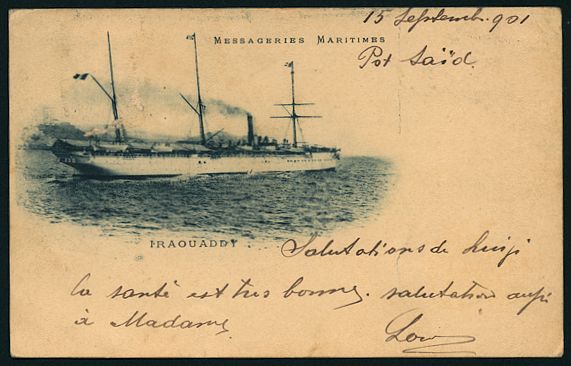 15 Septemb. 901
MESSAGERIES MARITIMES
Pot Saïd
IRAOUADDY
Salutations de Luigi
la santé est tres bonne. salutation aussi
à Madame